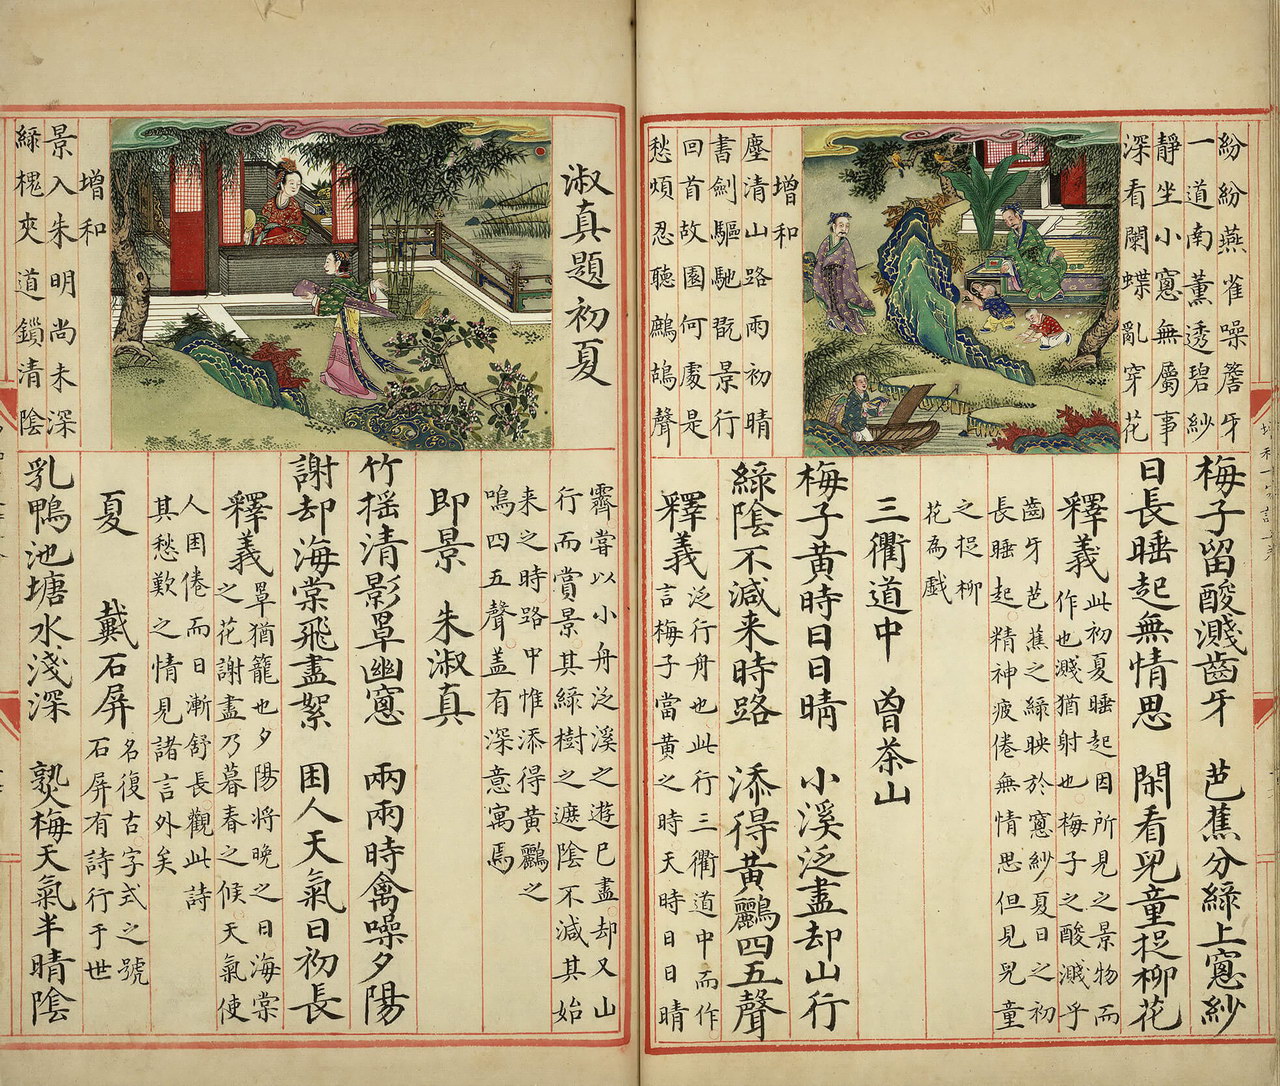 紛紛燕雀噪簷牙
一道南薰透碧紗
靜坐小窻無屬事
深看闌蝶亂穿花
增和
塵清山路雨初晴
書劍驅馳翫景行
回首故園何處是
愁煩忍聽鷓鴣聲
梅子留酸濺齒牙　芭蕉分綠上窻紗
日長睡起無情思　閑看兒童捉柳花
釋義　此初夏睡起因所見之景物而
作也濺猶射也梅子之酸濺乎
齒牙芭蕉之綠映於窻紗夏日之初
長睡起精神疲倦無情思但見兒童
之捉柳
花為戯
三衢道中　曾茶山
梅子黃時日日晴　小溪泛盡却山行
綠陰不減来時路　添得黃鸝四五聲
釋義　泛行舟也此行三衢道中而作
言梅子當黃之時天時日日晴
淑真題初夏
增和
景入朱明尚未深
綠槐夾道鎖清陰
霽嘗以小舟泛溪之遊已盡却又山
行而賞景其綠樹之遮陰不減其始
来之時路中惟添得黃鸝之
鳴四五聲盖有深意寓焉
即景　朱淑真
竹摇清影罩幽窻　兩兩時禽噪夕陽
謝却海棠飛盡絮　困人天氣日初長
釋義　罩猶籠也夕陽將晚之日海棠
之花謝盡乃暮春之候天氣使
人困倦而日漸舒長觀此詩
其愁歎之情見諸言外矣
夏　戴石屏　名復古字式之號
石屏有詩行于世
乳鴨池塘水淺深　熟梅天氣半晴陰